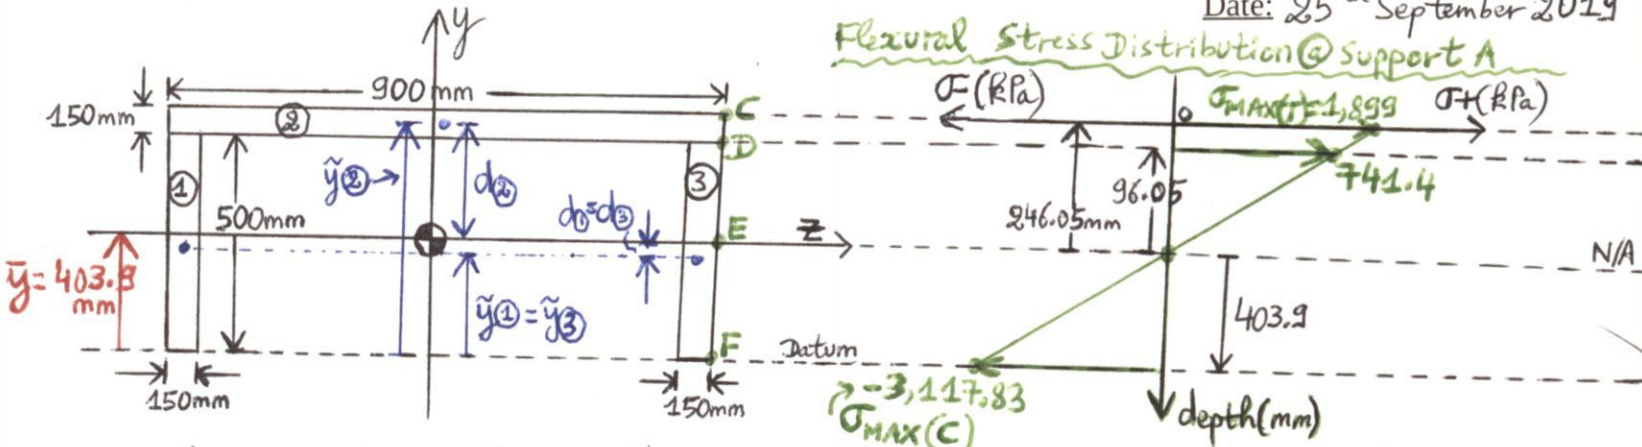 Date: 25 September 2019
Flexural Stress Distribution @ Support A
y
900mm
150mm
②
C
D
①
③
ỹ②
d②
500mm
d①=d③
E
z
ȳ=403.9
mm
ỹ①=ỹ③
F
Datum
150mm
150mm
σ-(kPa)
0
σMAX(T)=1,899
σ+(kPa)
741.4
96.05
246.05mm
N/A
403.9
-3,117.83
σMAX(C)
depth(mm)